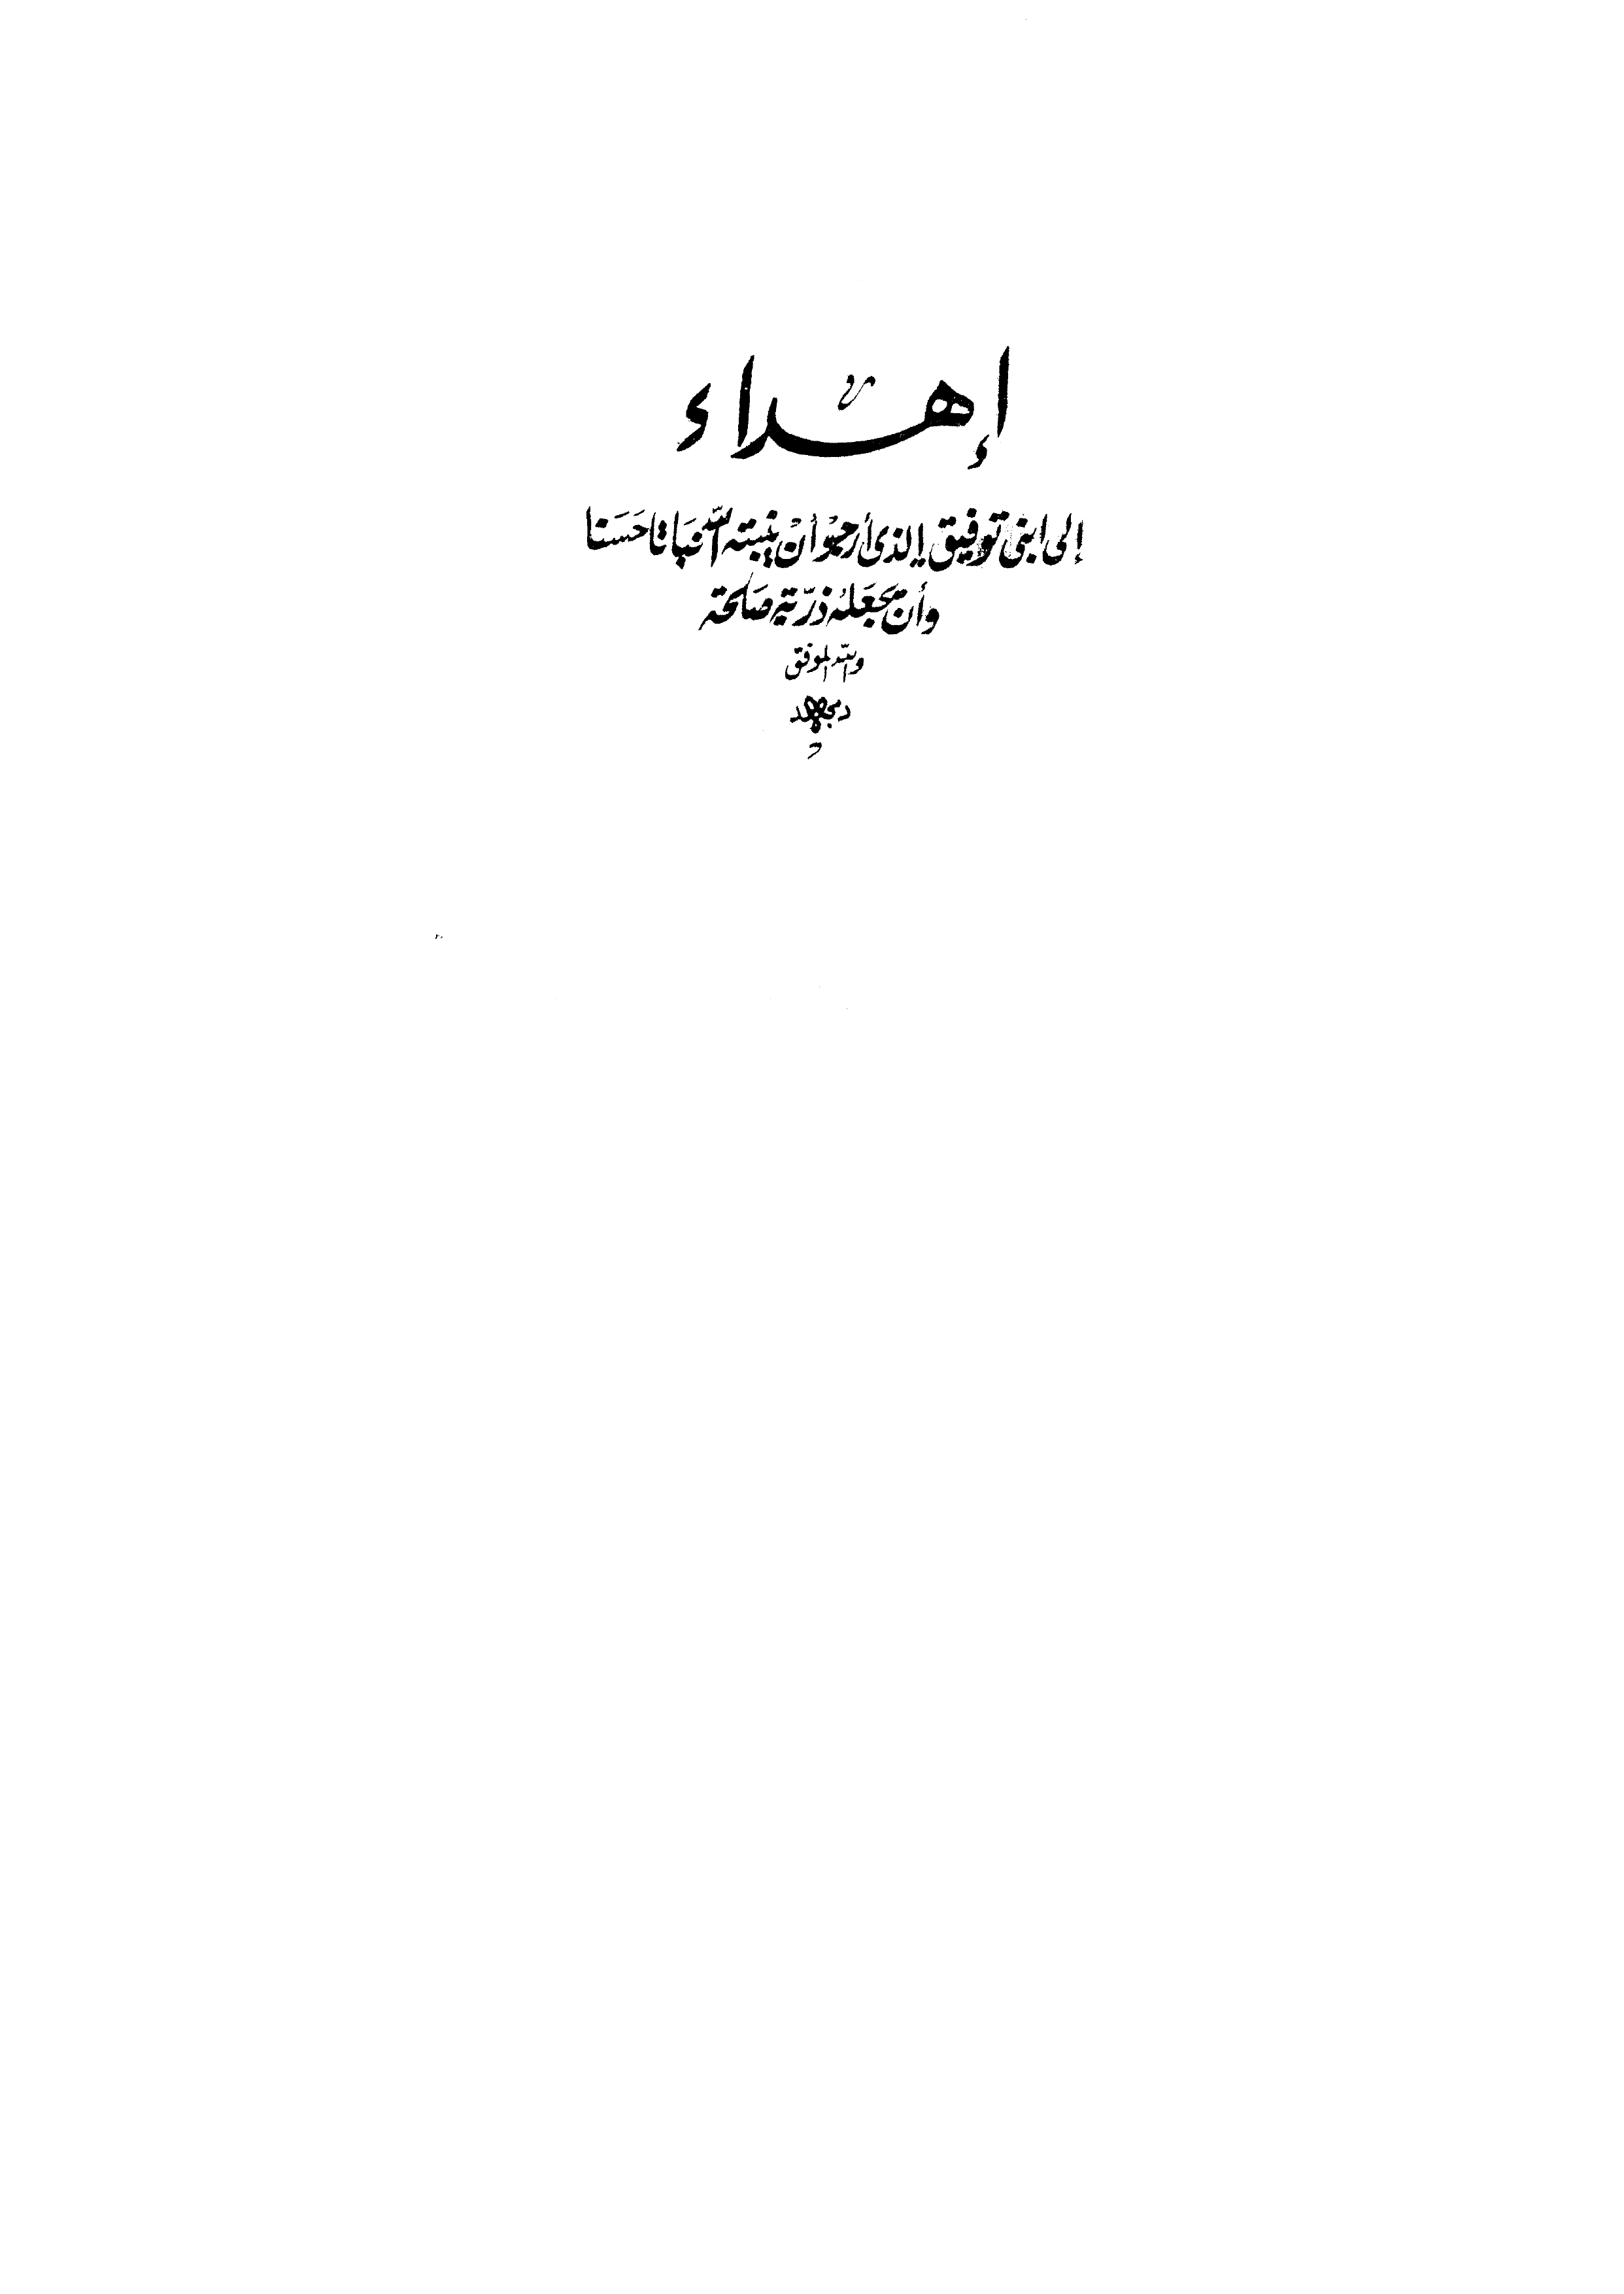 إهداء
إلى ابنى توفيق الذى أرجوُ أنْ ينبته اللّه نبَاتا حَسَنا
وأن يجعَلهُ ذرّية صَالحة
واللّه الموفق